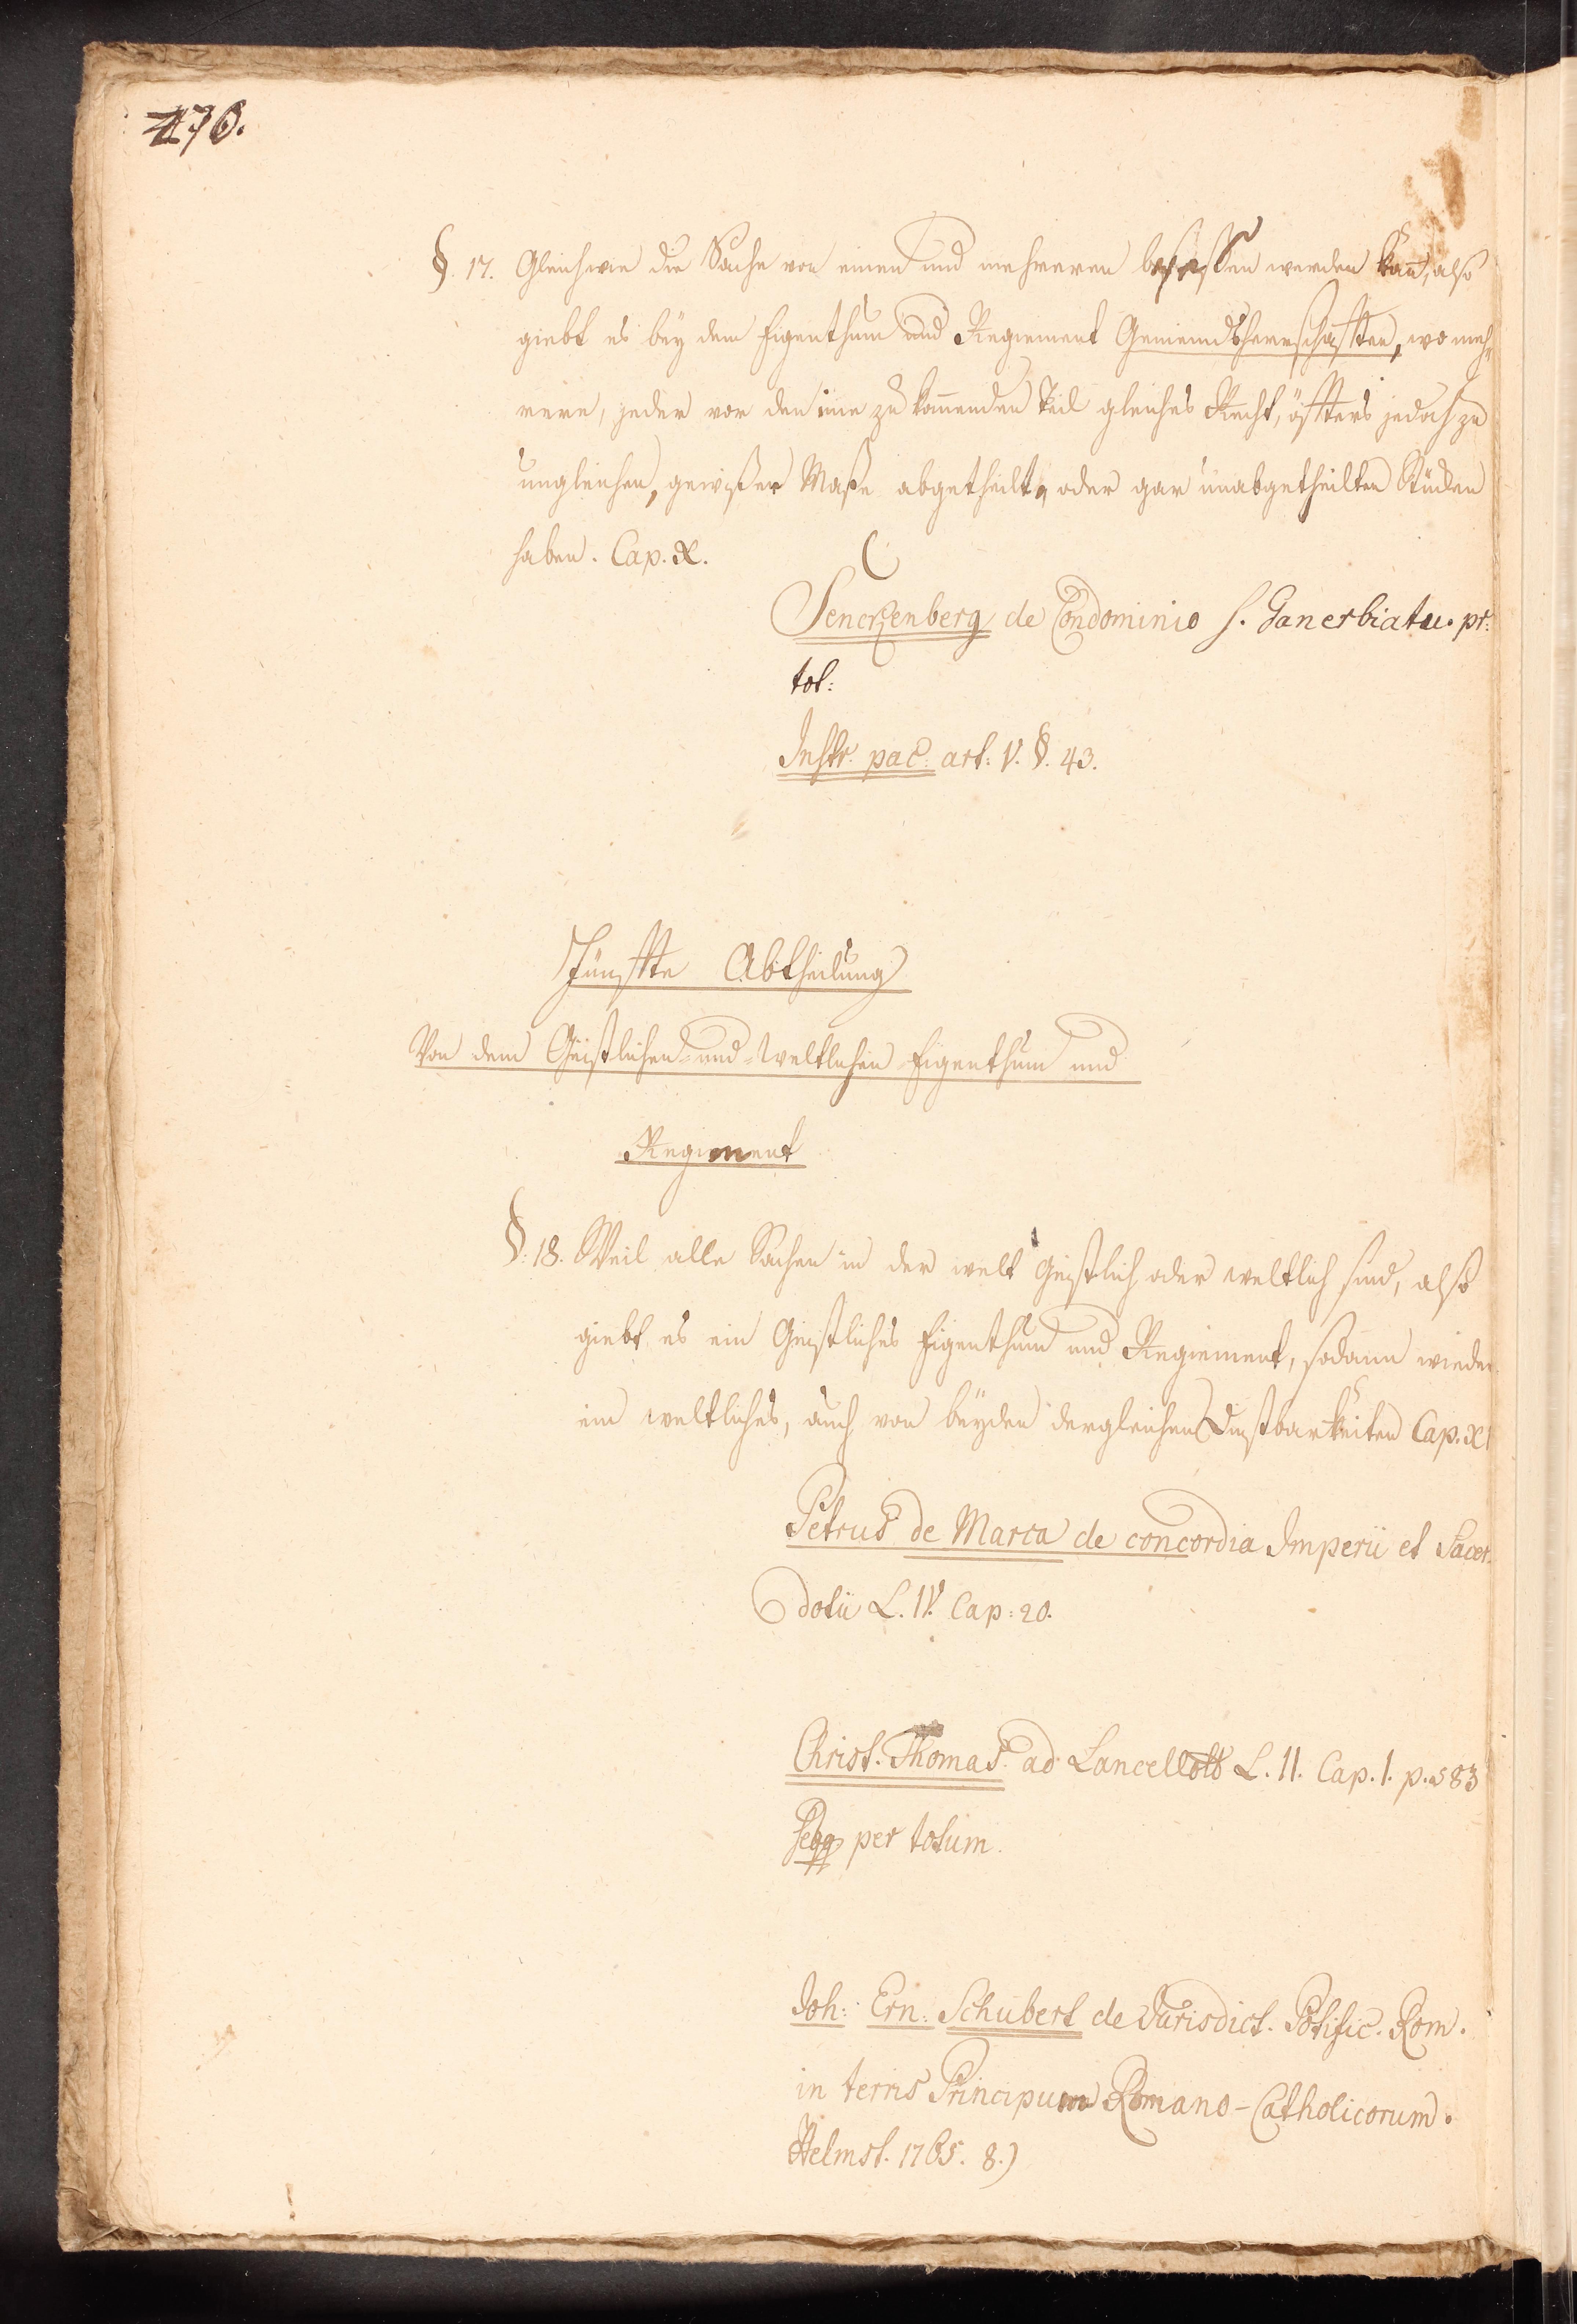 470.
§. 17. Gleichwie die Sache von einen und mehreren besessen werden kan̄, also
giebt es bey dem Eigenthum und Regiement Gemeindsherrschafften, wo meh
rere, jeder vor den ime zu kom̄enden Teil gleiches Recht, öffters jedoch zu
ungleichen, gewißer Maße abgetheilt, oder gar unabgetheilten Stücken
haben. Cap. X.
Senckenberg de Condominio s. Ganerbiatu. pr.
tot:
Instr. pac: art: V. §. 43.
Fünffte Abtheilung
Von dem Geistlichen- und- Weltlichen Eigenthum und
Regiment
§. 18. Weil alle Sachen in der welt Geistlich oder weltlich sind, also
giebt es ein Geistliches Eigenthum und Regiement, sodann wieder
ein weltliches, auch von beyden dergleichen Dinstbarkeiten Cap. XI
Petrus de Marca de concordia Imperii et Sacer-
dotii L. IV. Cap: 20.
Christ. Thomas. ad Lancellott L. II. Cap. 1. p. 583
seqq per totum.
Joh: Ern: Schubert de Jurisdict. Potific. Rom.
in terris Principum Romano-Catholicorum.
Helmst. 1765. 8.)